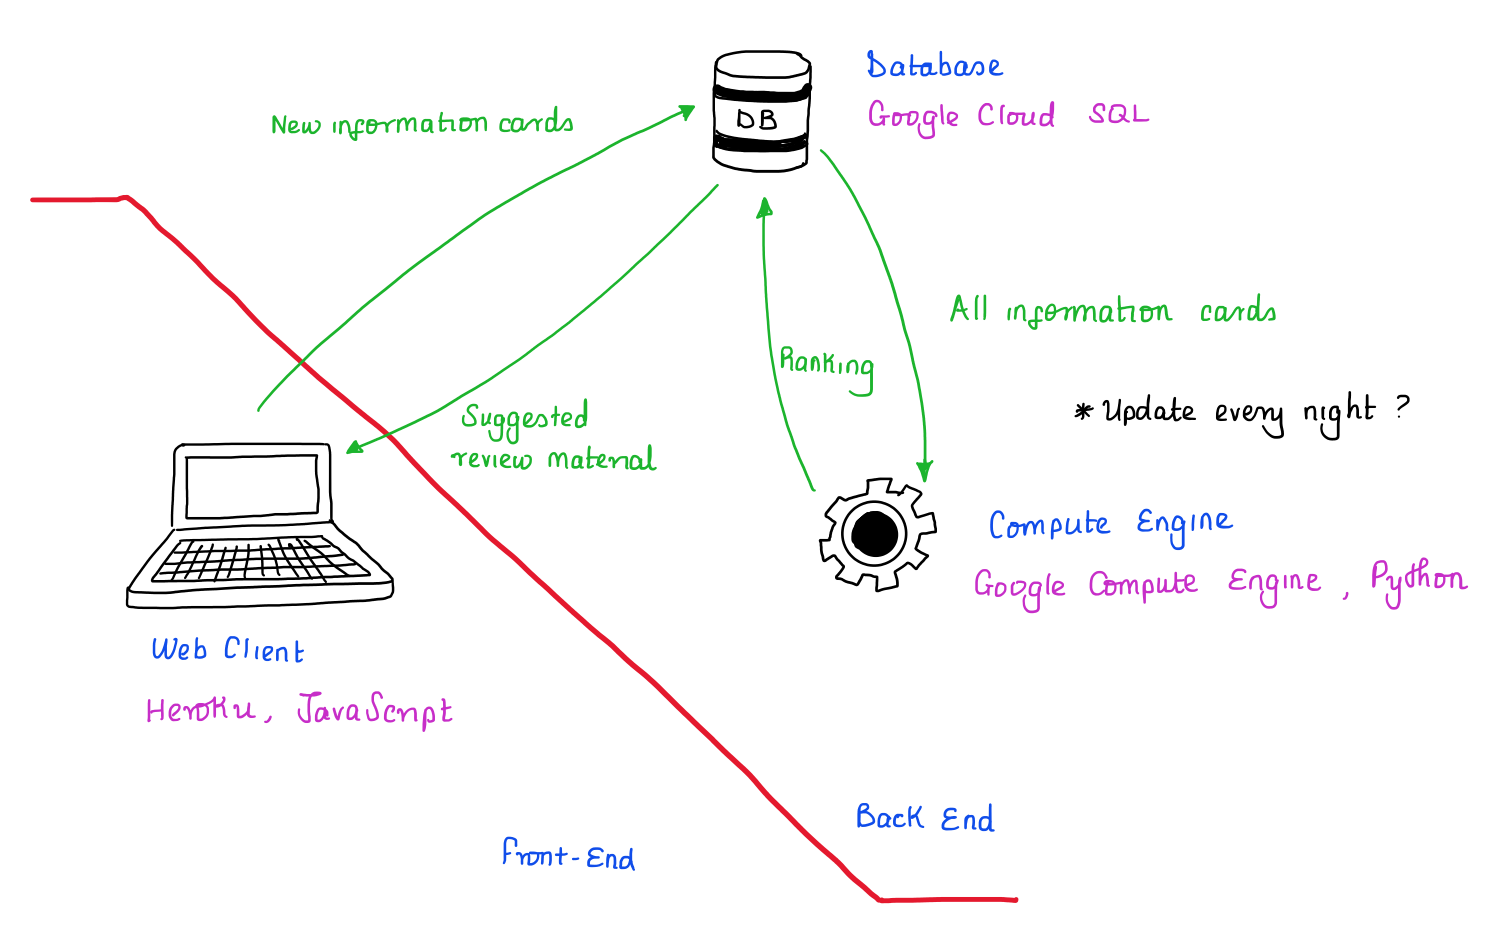 Database
Google Cloud SQL
DB
New information cards
All information cards
Ranking
* Update every night ?
Suggested
review material
Compute Engine
Google Compute Engine, Python
Web Client
Heroku, JavaScript
Back End
Front-End